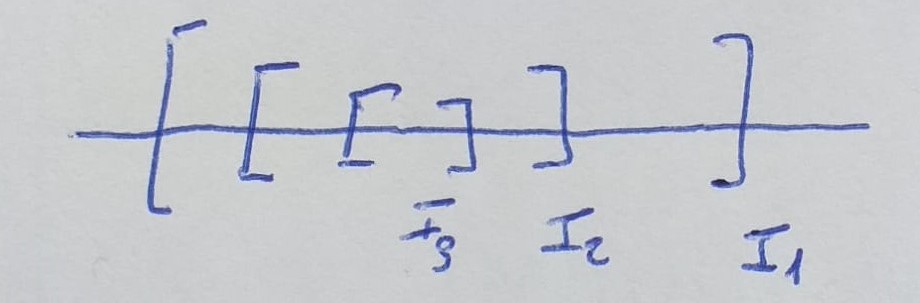 [ [ [ ] ] ]
I₃ I₂ I₁